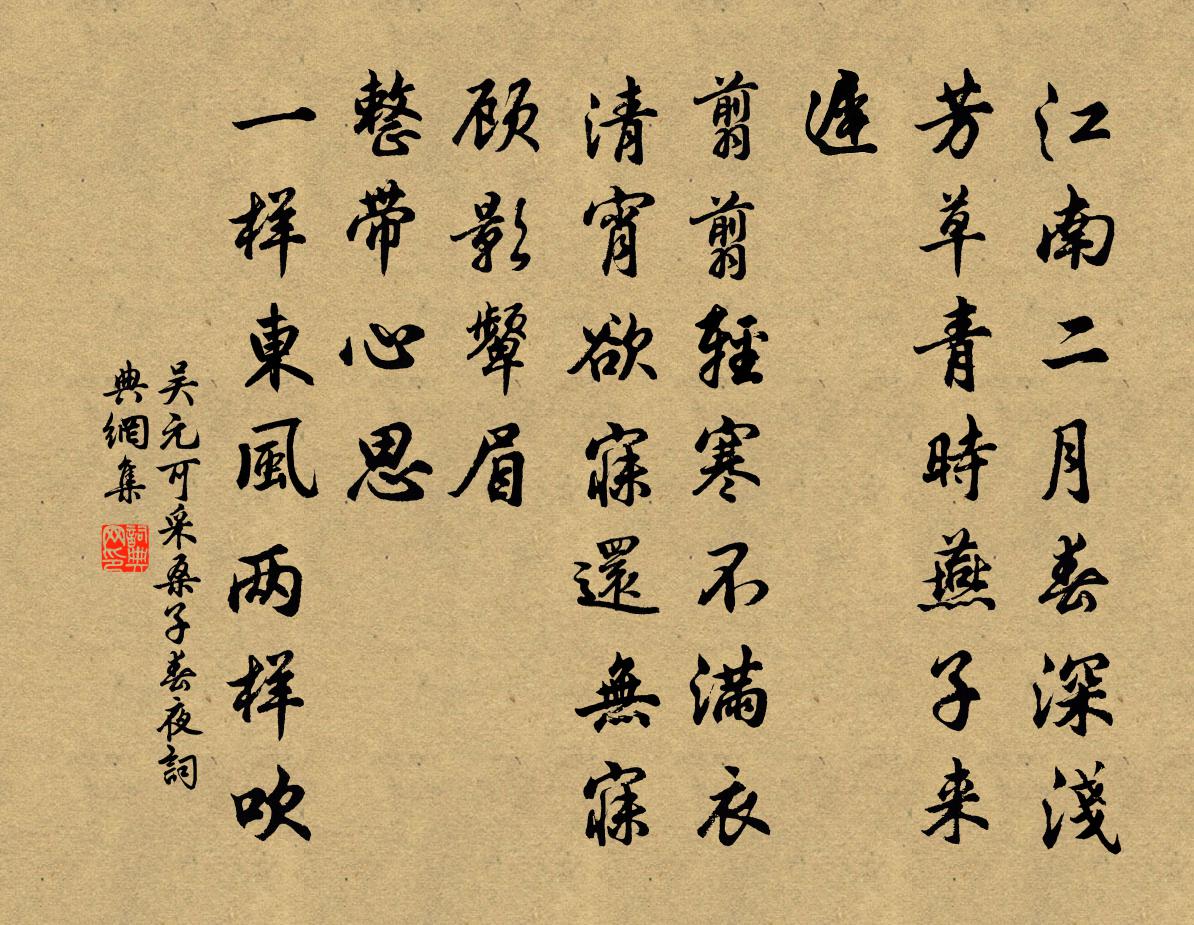 江南二月春深淺
芳草青時燕子来
遲
翦翦輕寒不滿衣
清宵欲寐還無寐
顾影顰眉
整带心思
一样東風两样吹
吴元可采桑子春夜詞
典網集
詞典
网印